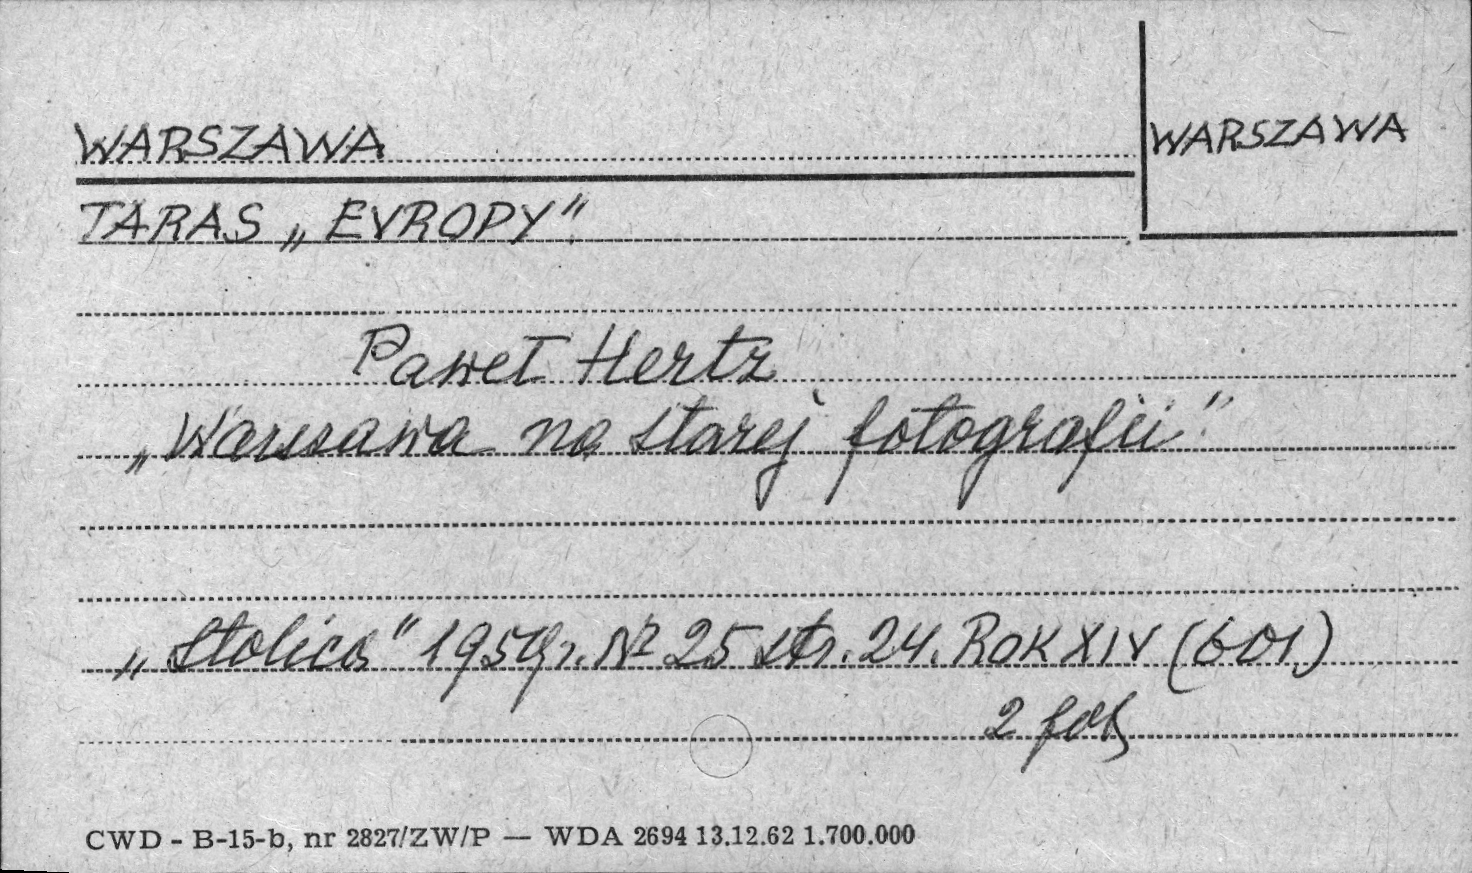 WARSZAWA
WARSZAWA
TARAS „EVROPY"
Paweł Hertz
„Warszawa na starej fotografii"
„Stolica" 1959r. Nº 25 str. 24. ROK XIV (601.)
2 fot
CWD - B-15-b, nr 2827/ZW/P — WDA 2694 13.12.62 1.700.000